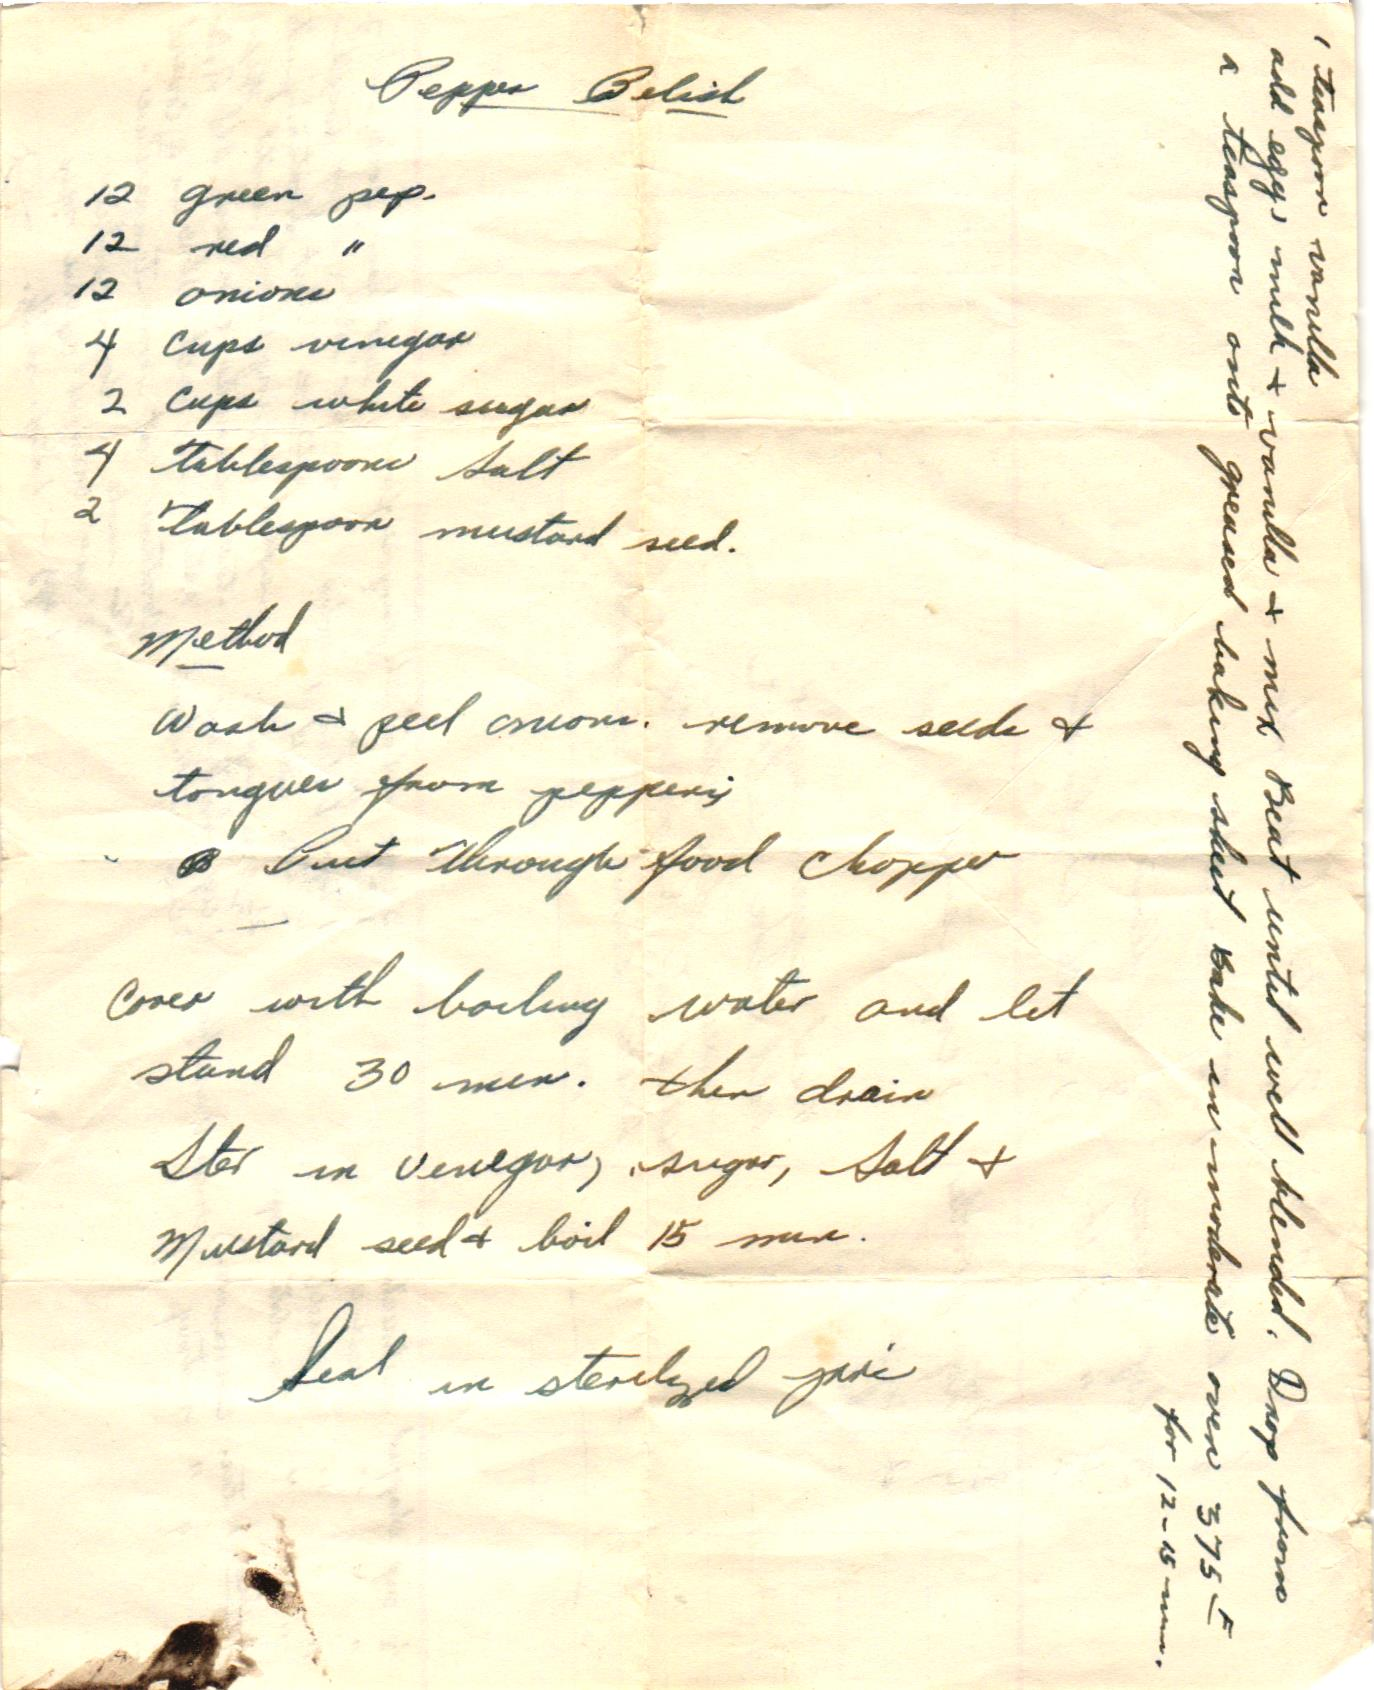 Pepper Relish
12 green pep.
12 red "
12 onions
4 cups vinegar
2 cups white sugar
4 tablespoons salt
2 tablespoon mustard seed.
Method
Wash & peel onions. remove seeds &
tongues from peppers;
Put through food chopper
Cover with boiling water and let
stand 30 min. then drain
Ster in vinegar, sugar, salt &
Mustard seed & boil 15 min.
Seal in sterilized jars
1 teaspoon vanilla
add eggs milk & vanilla & mix Beat until well blended. Drop from
a teaspoon onto greased baking sheet Bake in moderate oven 375 F
for 12-15 min.